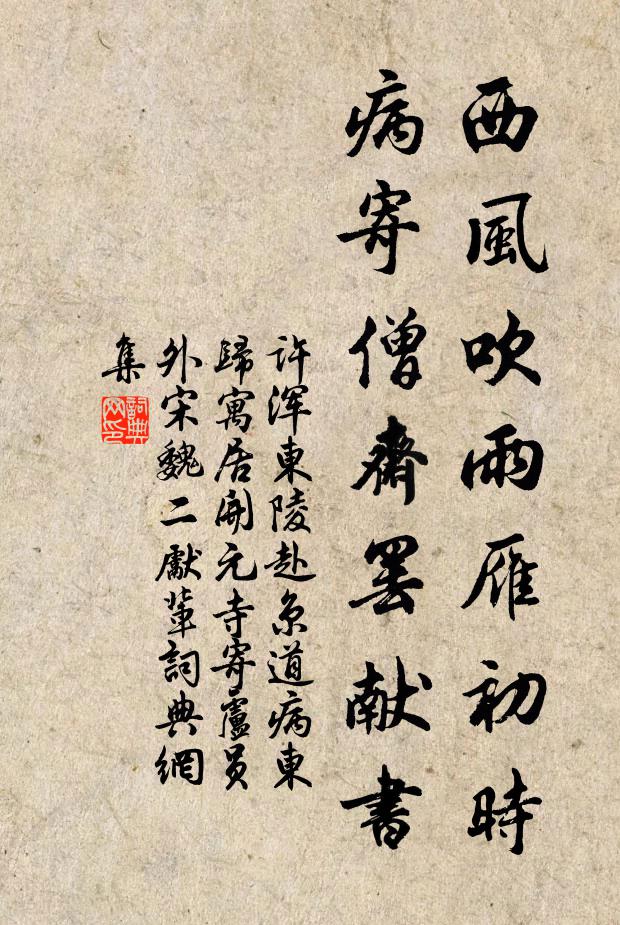 西風吹雨雁初時
病寄僧齋罷献書
许浑東陵赴京道病東
歸寓居開元寺寄盧员
外宋魏二獻輩詞典網
集
詞典
网印